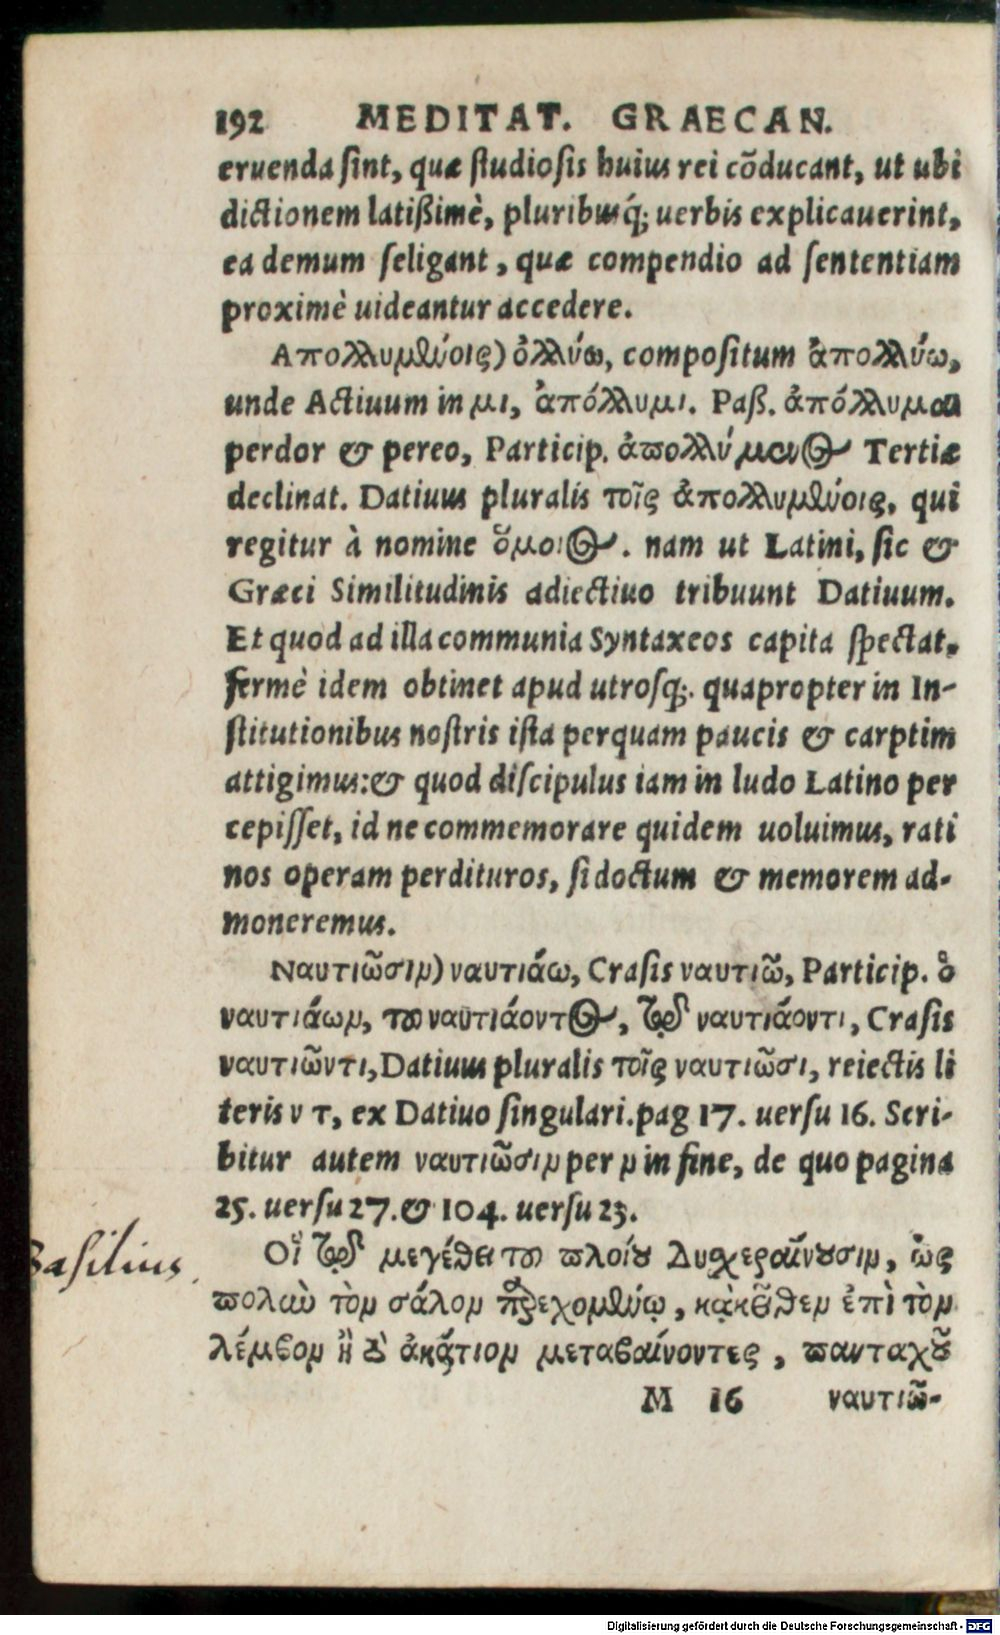 192 MEDITAT. GRAECAN.
eruenda sint, quæ studiosis huius rei cõducant, ut ubi
dictionem latißimè, pluribusq́; uerbis explicauerint,
ea demum seligant, quæ compendio ad sententiam
proximè uideantur accedere.
Απολλυμένοις) ὀλλύω, compositum ἀπολλύω,
unde Actiuum in μι, ἀπόλλυμι. Paß. ἀπόλλυμαι
perdor & pereo, Particip. ἀπολλύμενος Tertiæ
declinat. Datiuus pluralis τοῖς ἀπολλυμένοις, qui
regitur à nomine ὅμοιος. nam ut Latini, sic &
Græci Similitudinis adiectiuo tribuunt Datiuum.
Et quod ad illa communia Syntaxeos capita spectat,
fermè idem obtinet apud utrosq;. quapropter in In-
stitutionibus nostris ista perquam paucis & carptim
attigimus: & quod discipulus iam in ludo Latino per
cepisset, id ne commemorare quidem uoluimus, rati
nos operam perdituros, si doctum & memorem ad-
moneremus.
Ναυτιῶσιν) ναυτιάω, Crasis ναυτιῶ, Particip. ὁ
ναυτιάων, του ναυτιάοντος, τῷ ναυτιάοντι, Crasis
ναυτιῶντι, Datiuus pluralis τοῖς ναυτιῶσι, reiectis li
teris ν τ, ex Datiuo singulari. pag 17. uersu 16. Scri-
bitur autem ναυτιῶσιν per ν in fine, de quo pagina
25. uersu 27. & 104. uersu 23.
Basilius
Οἱ τῷ μεγέθει του πλοίου δυσχεραίνουσιν, ὡς
πολὺν τὸν σάλον παρεχομένῳ, κᾀκεῖθεν ἐπὶ τὸν
λέμβον ἢ τὸ ἀκάτιον μεταβαίνοντες, πανταχοῦ
M 16 ναυτιῶ-
Digitalisierung gefördert durch die Deutsche Forschungsgemeinschaft - DFG